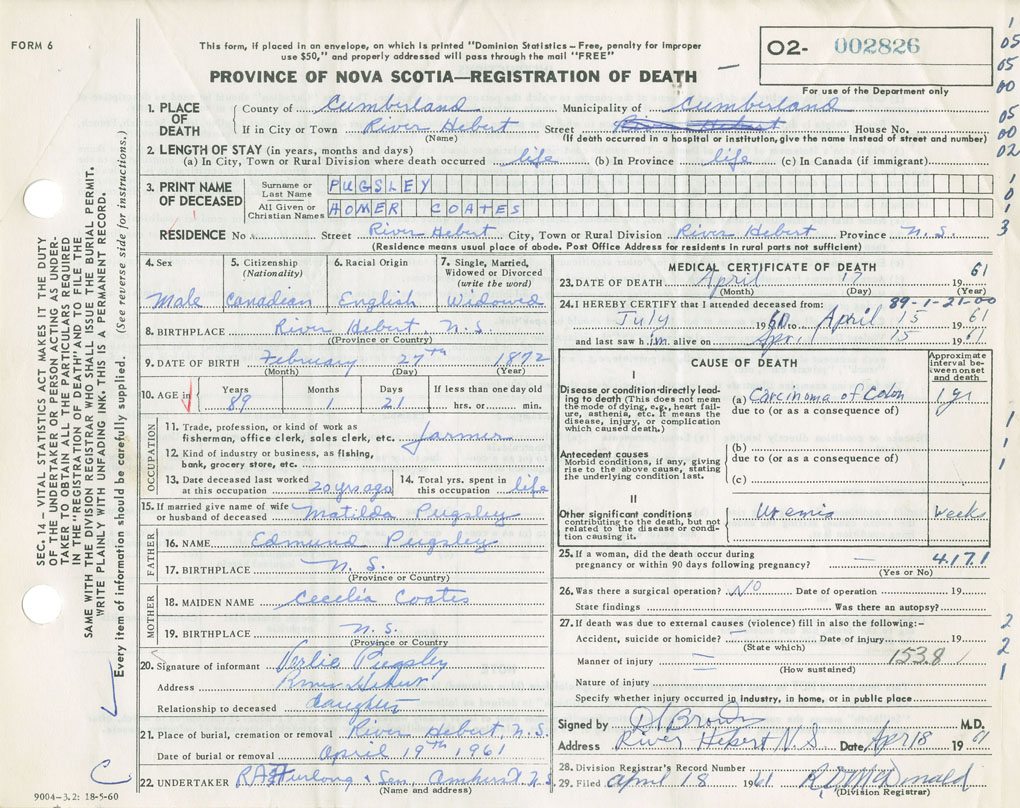 FORM 6
This form, if placed in an envelope, on which is printed "Dominion Statistics – Free, penalty for improper
use $50," and properly addressed will pass through the mail "FREE"
PROVINCE OF NOVA SCOTIA—REGISTRATION OF DEATH
O2- 002826
For use of the Department only
1. PLACE OF DEATH County of Cumberland Municipality of Cumberland
If in City or Town River Hebert Street River Hebert House No.
(Name) (If death occurred in a hospital or institution, give the name instead of street and number)
2. LENGTH OF STAY (in years, months and days)
(a) In City, Town or Rural Division where death occurred life (b) In Province life (c) In Canada (if immigrant)
3. PRINT NAME OF DECEASED Surname or Last Name PUGSLEY
All Given or Christian Names HOMER COATES
RESIDENCE No Street River Hebert City, Town or Rural Division River Hebert Province N.S.
(Residence means usual place of abode. Post Office Address for residents in rural parts not sufficient)
4. Sex Male
5. Citizenship (Nationality) Canadian
6. Racial Origin English
7. Single, Married, Widowed or Divorced (write the word) Widowed
8. BIRTHPLACE River Hebert, N.S.
(Province or Country)
9. DATE OF BIRTH February 27th 1872
(Month) (Day) (Year)
10. AGE in Years 89 Months 1 Days 21 If less than one day old hrs. or min.
OCCUPATION
11. Trade, profession, or kind of work as
fisherman, office clerk, sales clerk, etc. farmer
12. Kind of industry or business, as fishing,
bank, grocery store, etc.
13. Date deceased last worked at this occupation 20 yrs ago
14. Total yrs. spent in this occupation life
15. If married give name of wife or husband of deceased Matilda Pugsley
FATHER
16. NAME Edmund Pugsley
17. BIRTHPLACE N.S.
(Province or Country)
MOTHER
18. MAIDEN NAME Cecelia Coates
19. BIRTHPLACE N.S.
(Province or Country)
20. Signature of informant Verlie Pugsley
Address River Hebert
Relationship to deceased daughter
21. Place of burial, cremation or removal River Hebert, N.S.
Date of burial or removal April 19th 1961
22. UNDERTAKER R A Furlong & Son Amherst N.S.
(Name and address)
MEDICAL CERTIFICATE OF DEATH
23. DATE OF DEATH April 17 1961
(Month) (Day) (Year)
24. I HEREBY CERTIFY that I attended deceased from: 89-1-21-00
July 1960 to April 15 1961
and last saw him alive on Apri 15 1961
CAUSE OF DEATH
Approximate interval between onset and death
I
Disease or condition directly leading to death (This does not mean the mode of dying, e.g., heart failure, asthenia, etc. It means the disease, injury, or complication which caused death.)
(a) Carcinoma of Colon 1 yr
due to (or as a consequence of)
Antecedent causes
Morbid conditions, if any, giving rise to the above cause, stating the underlying condition last.
(b)
due to (or as a consequence of)
(c)
II
Other significant conditions
contributing to the death, but not related to the disease or condition causing it.
Uremia weeks
25. If a woman, did the death occur during
pregnancy or within 90 days following pregnancy? — 4.17.1
(Yes or No)
26. Was there a surgical operation? NO Date of operation 19
State findings Was there an autopsy?
27. If death was due to external causes (violence) fill in also the following:-
Accident, suicide or homicide? Date of injury 19
(State which)
Manner of injury 153.8
(How sustained)
Nature of injury
Specify whether injury occurred in industry, in home, or in public place
Signed by D Brown M.D.
Address River Hebert N.S Date, Apr 18 1961
28. Division Registrar's Record Number
29. Filed April 18 1961 R D McDonald
(Division Registrar)
SEC. 14 – VITAL STATISTICS ACT MAKES IT THE DUTY
OF THE UNDERTAKER OR PERSON ACTING AS UNDER-
TAKER TO OBTAIN ALL THE PARTICULARS REQUIRED
IN THE "REGISTRATION OF DEATH" AND TO FILE THE
SAME WITH THE DIVISION REGISTRAR WHO SHALL ISSUE THE BURIAL PERMIT.
WRITE PLAINLY WITH UNFADING INK. THIS IS A PERMANENT RECORD.
Every item of information should be carefully supplied. (See reverse side for instructions.)
C
9004-3.2: 18-5-60
1
05
05
00
05
00
02
1
0
1
3
1
1
1
2
2
1